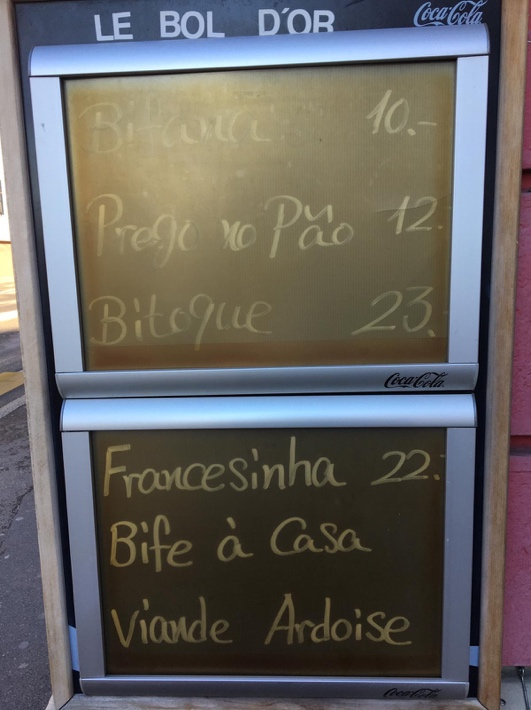 LE BOL D'OR
Coca-Cola
Bifana 10.-
Prego no Pão 12.
Bitoque 23.
Coca-Cola
Francesinha 22.
Bife à Casa
Viande Ardoise
Coca-Cola